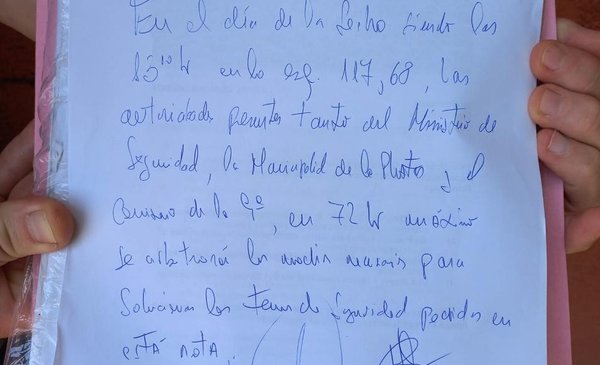 En el día de la fecha siendo las
15:10 h en la esq. 117, 68, las
autoridades presentes tanto del Ministerio de
Seguridad, la Municipalid de La Plata y el
Comisario de la 9º, en 72 hr máximo
se arbitrará los medios necesarios para
solucionar los temas de seguridad pedidos en
ESTÁ NOTA.